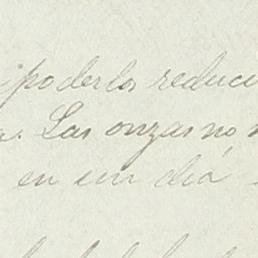 poderlos reduci
. Las onzas no
en un día